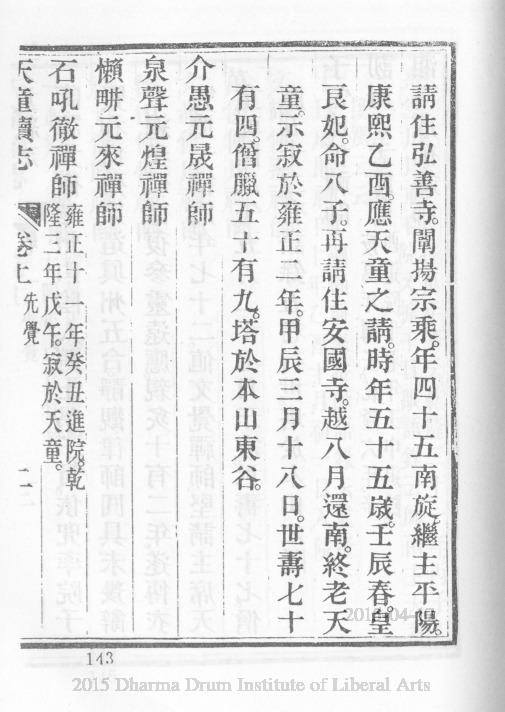 請住弘善寺。闡揚宗乘。年四十五南旋。繼主平陽。
康熙乙酉。應天童之請。時年五十五歲。壬辰春。皇
良妃。命八子。再請住安國寺。越八月還南。終老天
童。示寂於雍正二年。甲辰三月十八日。世壽七十
有四。僧臘五十有九。塔於本山東谷。
介愚元晟禪師
泉聲元煌禪師
懶畊元來禪師
石吼徹禪師 雍正十一年癸丑進院。乾
隆三年戊午。寂於天童。
天童續志 卷上 先覺 二
143
2015 Dharma Drum Institute of Liberal Arts